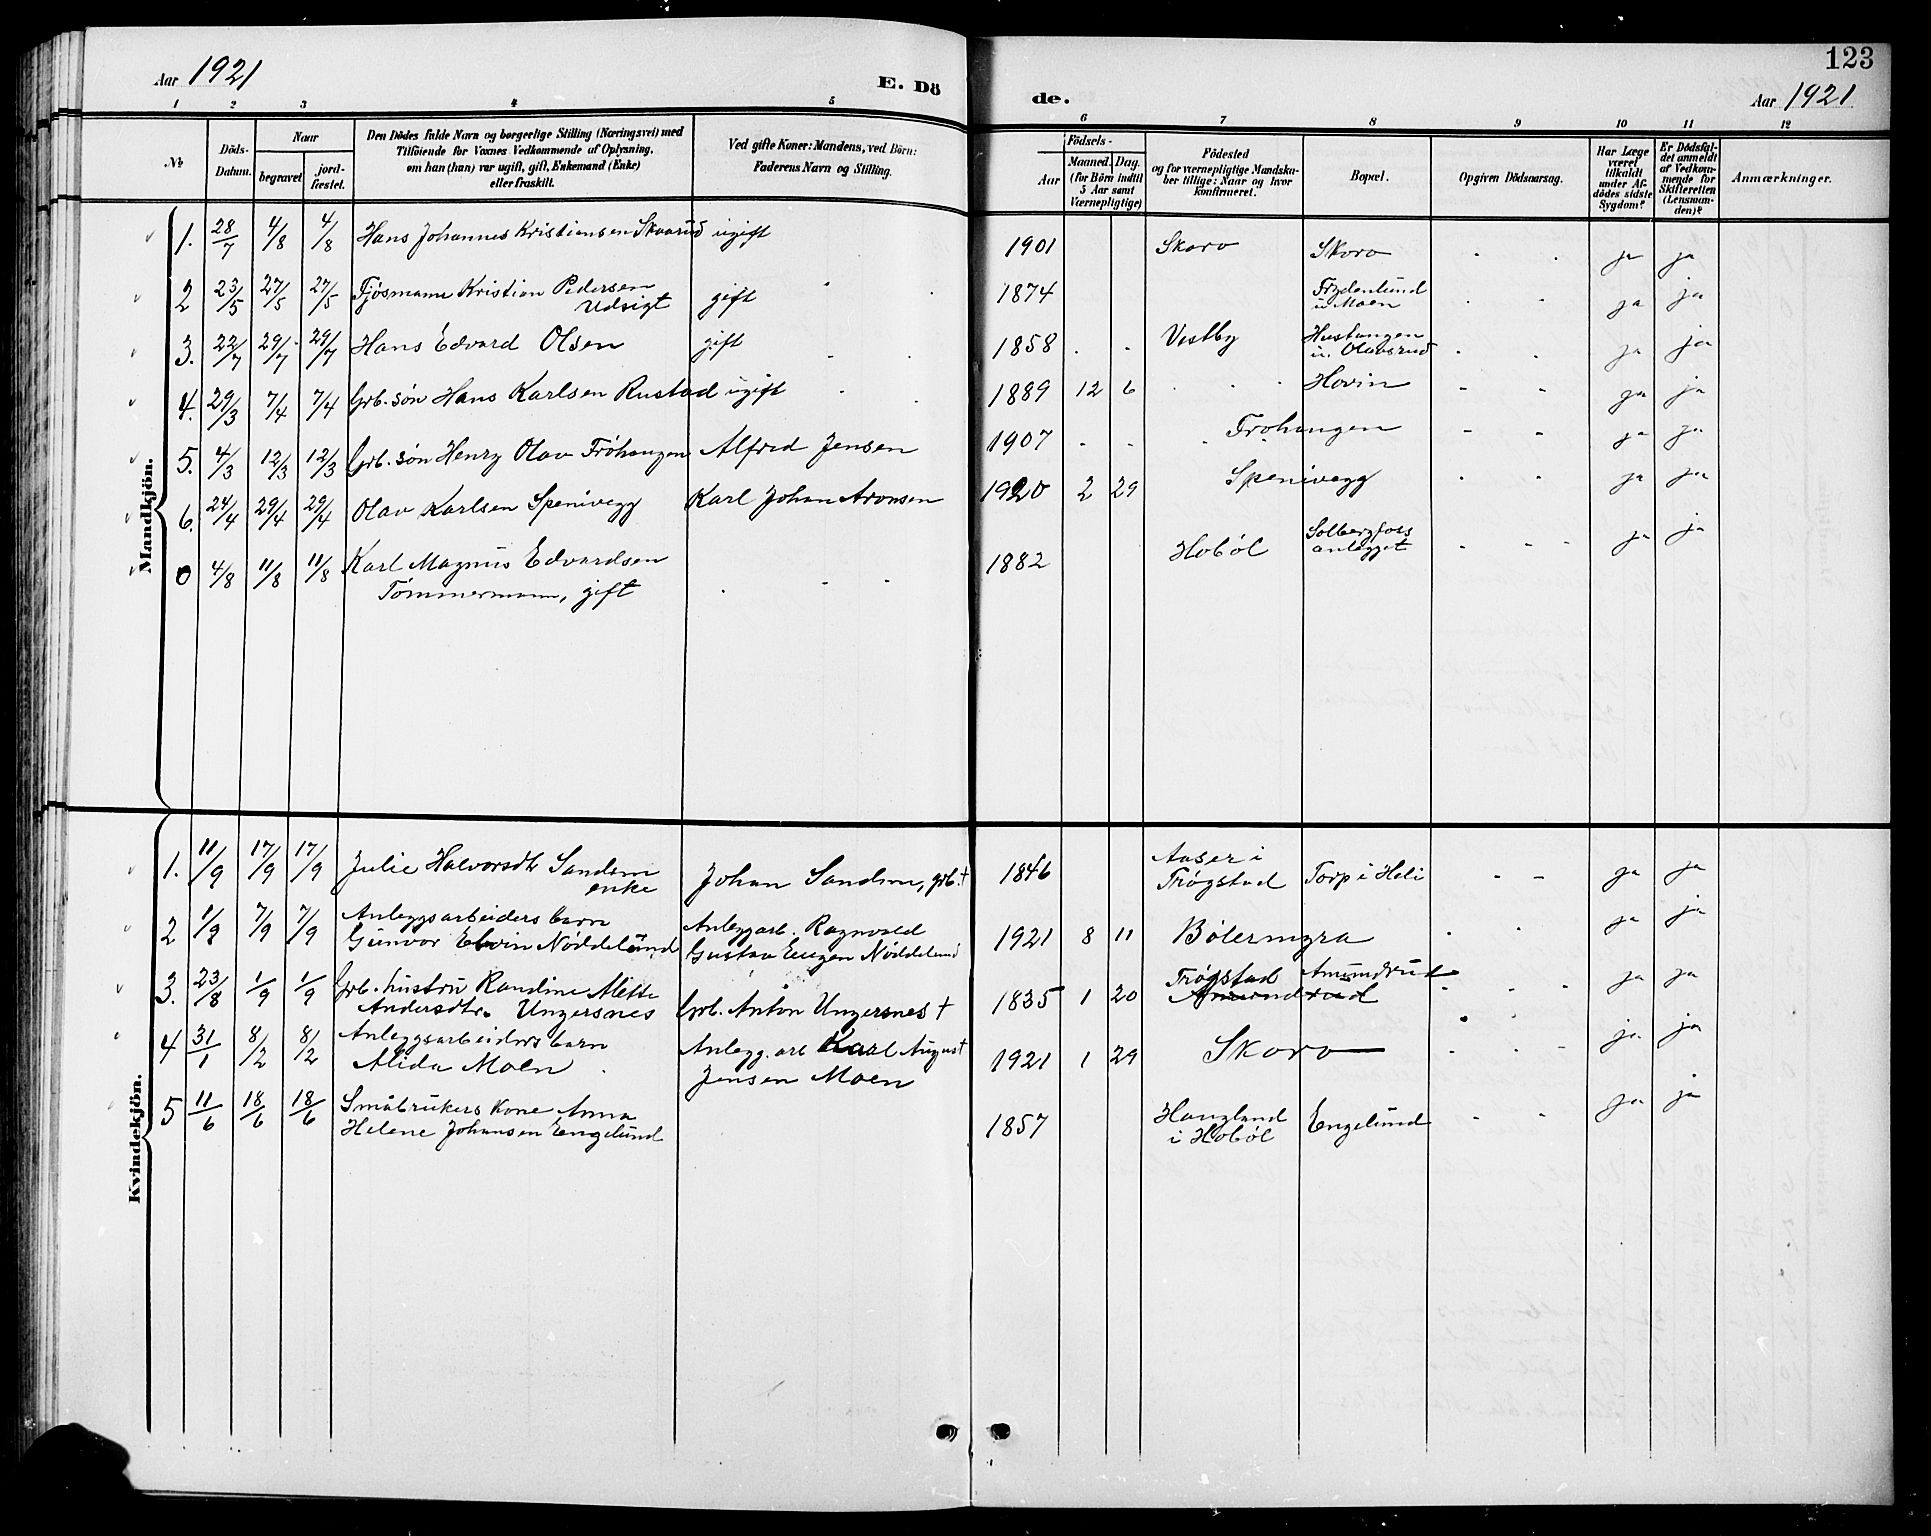 Aar 1921
E. Dö
de.
123
Aar 1921
1 2 3 4 5 6 7 8 9 10 11 12
No
Döds-Datum.
Naar
begravet
jord-fæstet.
Den Dödes fulde Navn og borgerlige Stilling (Næringsvei) med
Tilföiende for Voxnes Vedkommende af Oplysning,
om han (hun) var ugift, gift, Enkemand (Enke)
eller fraskilt.
Ved gifte Koner: Mandens, ved Börn:
Faderens Navn og Stilling.
Födsels-
Aar
Maaned. Dag.
(for Børn indtil
5 Aar samt
Værnepligtige)
Födested
og for værnepligtige Mandska-
ber tillige: Naar og hvor
konfirmeret.
Bopæl.
Opgiven Dödsaarsag.
Har Læge
været
tilkaldt
under Af-
dödes sidste
Sygdom?
Er Dödsfal-
det anmeldt
af Vedkom-
mende for
Skifteretten
(Lensman-
den)?
Anmærkninger.
Mandkjön.
1. 28/7 4/8 4/8 Hans Johannes Kristiansen Skvarud ugift 1901 Skoro Skoro ja ja
2 23/5 27/5 27/5 Fjøsmann Kristian Pedersen
Udsigt gift 1874 Frydenlund
u. Moen ja ja
3. 22/7 29/7 29/7 Hans Edvard Olsen gift 1858 Vestby Hustangen
u. Olavsrud ja ja
4. 29/3 7/4 7/4 Grb. søn Hans Karlsen Rustad ugift 1889 12 6 Hovin ja ja
5. 4/3 12/3 12/3 Grb. søn Henry Olav Frøhaugen Alfred Jensen 1907 Frøhaugen ja ja
6. 24/4 29/4 29/4 Olav Karlsen Spenivegg Karl Johan Aronsen 1920 2 29 Spenivegg ja ja
0 4/8 11/8 11/8 Karl Magnus Edvardsen
Tømmermann, gift 1882 Hobøl Solbergfoss
anlegget ja ja
Kvindekjön.
1. 11/9 17/9 17/9 Julie Halvorsdtr Sandem
enke Johan Sandem, grb. † 1846 Aaser i
Trøgstad Torp i Heli ja ja
2 1/9 7/9 7/9 Anleggsarbeiders barn
Gunvor Elvin Nøddelund Anleggarb. Ragnvald
Gustav Eugen Nøddelund 1921 8 11 Bølermyra ja ja
3. 23/8 1/9 1/9 Grb. hustru Randine Alette
Andersdtr. Ungersnes Grb. Anton Ungersnes † 1835 1 20 Trøgstad Amundrud
Amundrud ja ja
4 31/1 8/2 8/2 Anleggsarbeiders barn
Alida Moen Anlegg. arb Karl August
Jensen Moen 1921 1 29 Skoro ja ja
5 11/6 18/6 18/6 Småbrukers Kone Anna
Helene Johansen Engelund 1857 Haugland
i Hobøl Engelund ja ja